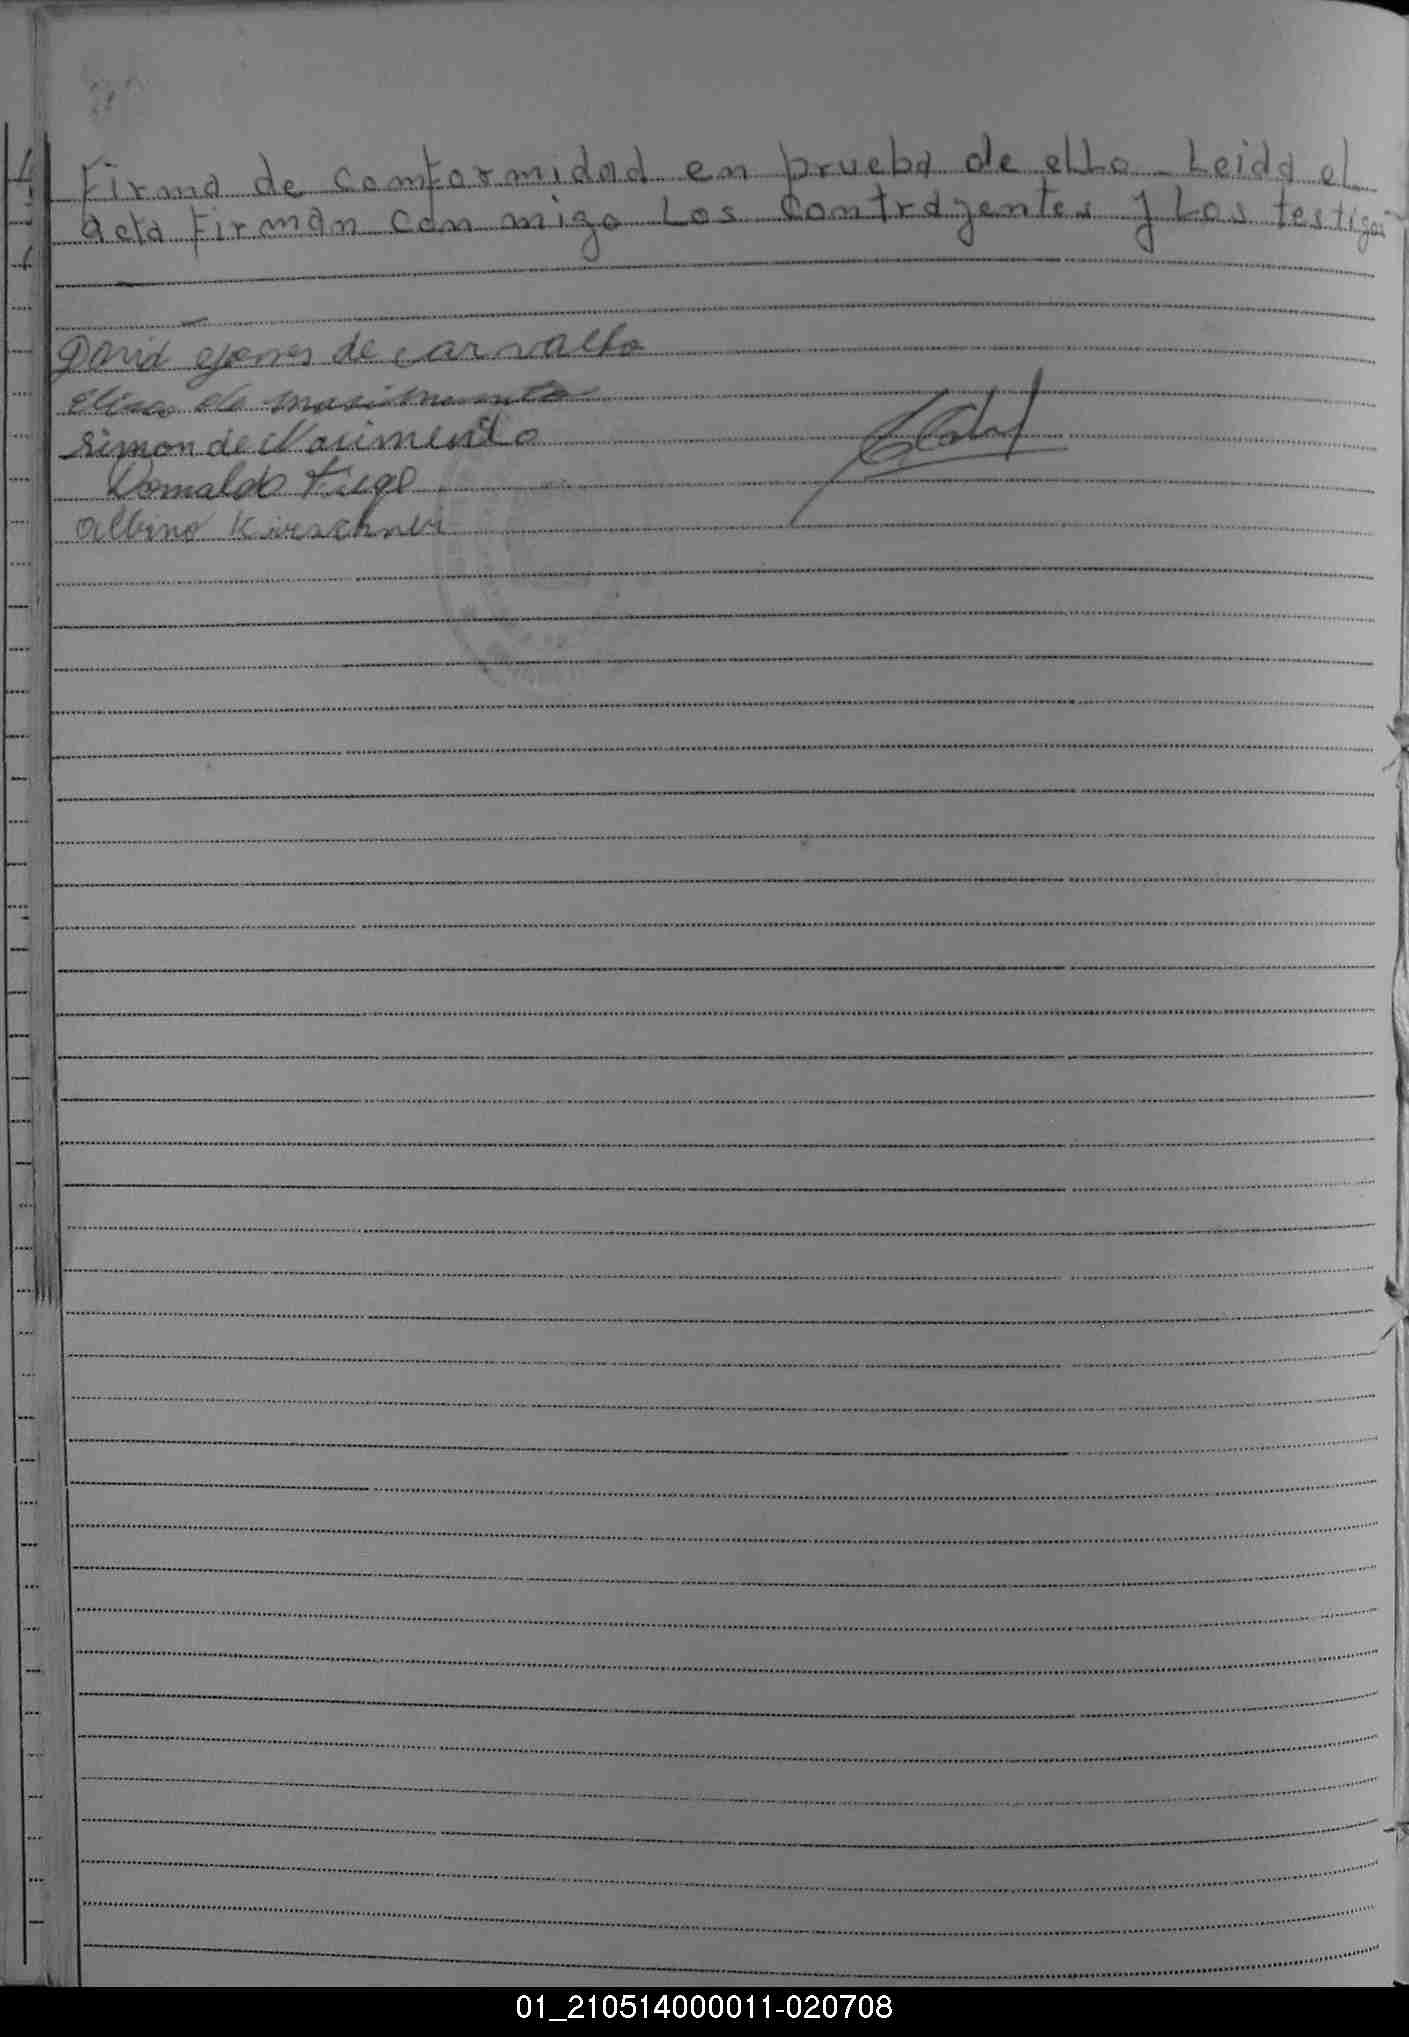 Firma de comformidad en prueba de ello - Leida el
acta firman con migo Los Contrayentes y Los testigos
David de carvallo
de
Simon de Nacimento
Romaldo
Albino Kirschner
01_210514000011-020708